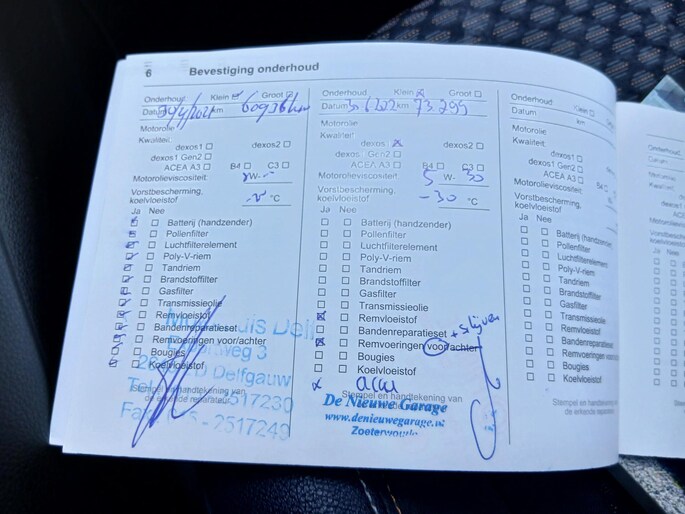 6 Bevestiging onderhoud
Onderhoud: Klein Groot
Datum km 60936 km
Motorolie
Kwaliteit:
dexos1 dexos2
dexos1 Gen2
ACEA A3 B4 C3
Motorolieviscositeit: W-
Vorstbescherming,
koelvloeistof °C
Ja Nee
Batterij (handzender)
Pollenfilter
Luchtfilterelement
Poly-V-riem
Tandriem
Brandstoffilter
Gasfilter
Transmissieolie
Remvloeistof
Bandenreparatieset
Remvoeringen voor/achter
Bougies
Koelvloeistof
Stempel en handtekening van
de erkende reparateur
weg 3
Delfgauw
Tel 2517230
Fax 2517249
Onderhoud: Klein x Groot
Datum km 73299
Motorolie
Kwaliteit:
dexos x dexos2
dexos1 Gen2
ACEA A3 B4 C3
Motorolieviscositeit: 5 W- 30
Vorstbescherming,
koelvloeistof -30 °C
Ja Nee
Batterij (handzender)
Pollenfilter
Luchtfilterelement
Poly-V-riem
Tandriem
Brandstoffilter
Gasfilter
Transmissieolie
Remvloeistof
Bandenreparatieset + schijven
Remvoeringen voor/achter
Bougies
Koelvloeistof
x accu
Stempel en handtekening van
De Nieuwe Garage
www.denieuwegarage.nl
Zoeterwoude
Onderhoud: Klein
Datum km
Motorolie
Kwaliteit:
dexos1
dexos1 Gen2
ACEA A3
Motorolieviscositeit:
Vorstbescherming,
koelvloeistof
Ja Nee
Batterij (handzender)
Pollenfilter
Luchtfilterelement
Poly-V-riem
Tandriem
Brandstoffilter
Gasfilter
Transmissieolie
Remvloeistof
Bandenreparatieset
Remvoeringen voor/achter
Bougies
Koelvloeistof
Stempel en handtekening
de erkende reparateur